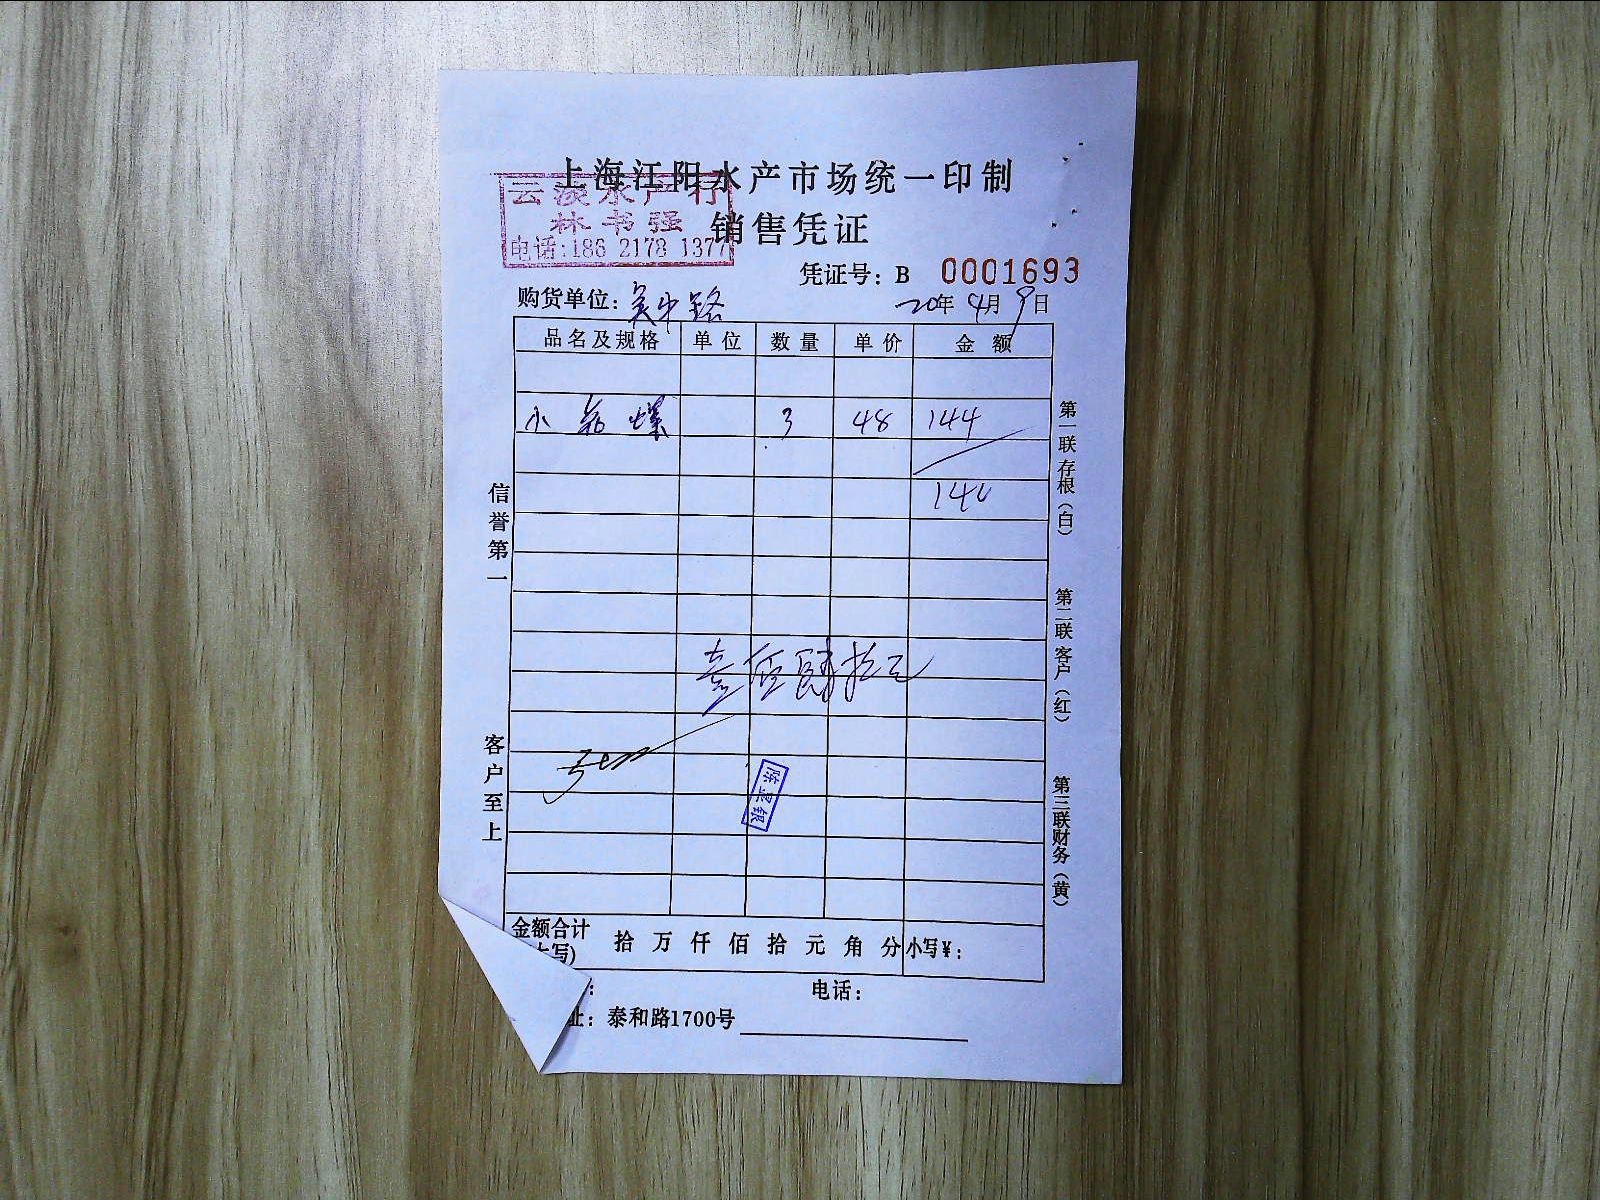 上海江阳水产市场统一印制
云淡水产行
林书强
销售凭证
电话:186 2178 1377
凭证号: B 0001693
购货单位: 吴中路 20年 4月 9日
品名及规格 单位 数量 单价 金额
小 螺 3 48 144
140
壹佰肆拾元
金额合计
大写) 拾 万 仟 佰 拾 元 角 分 小写¥:
: 电话:
址: 泰和路1700号
信誉第一
客户至上
第一联 存根(白)
第二联 客户(红)
第三联 财务(黄)